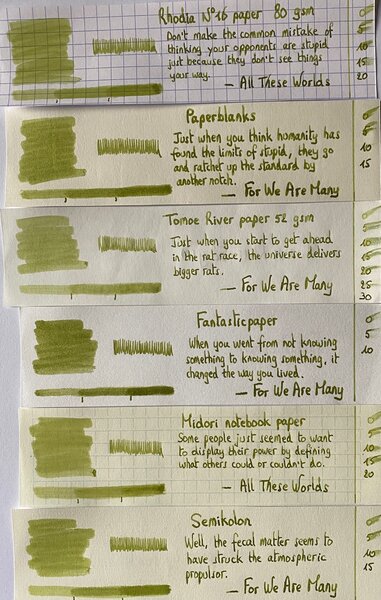 Rhodia N°16 paper 80 gsm
Don't make the common mistake of
thinking your opponents are stupid
just because they don't see things
your way.
— All These Worlds
0
5
10
15
20
Paperblanks
Just when you think humanity has
found the limits of stupid, they go
and ratchet up the standard by
another notch.
— For We Are Many
5
10
15
Tomoe River paper 52 gsm
Just when you start to get ahead
in the rat race, the universe delivers
bigger rats.
— For We Are Many
20
25
30
Fantasticpaper
When you went from not knowing
something to knowing something, it
changed the way you lived.
— For We Are Many
0
5
10
Midori notebook paper
Some people just seemed to want
to display their power by defining
what others could or couldn't do.
— All These Worlds
5
10
15
20
Semikolon
Well, the fecal matter seems to
have struck the atmospheric
propulsor.
— For We Are Many
10
15